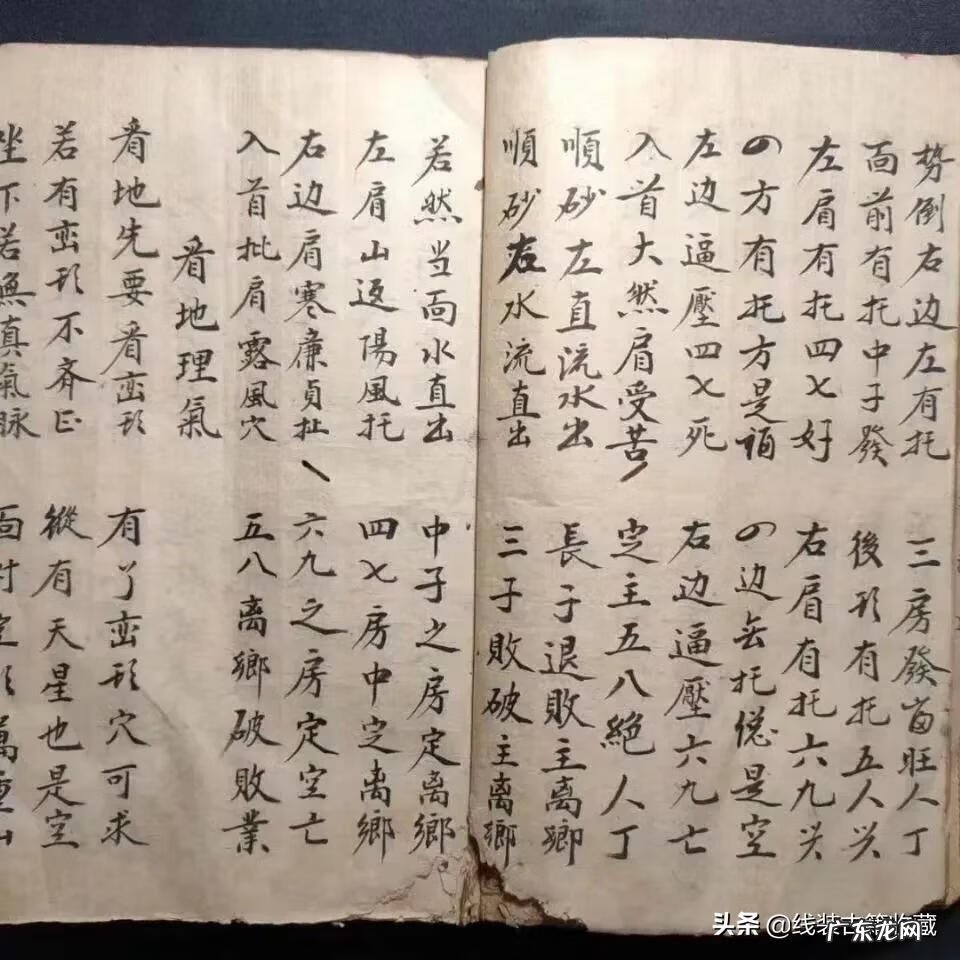 势倒右边左有托 三房發留旺人丁
面前有托中子發 後形有托五人兴
左肩有托四七好 右肩有托六九兴
四方有托方是福 四边無托总是空
左边逼壓四七死 右边逼壓六九亡
入首大然肩受苦 定主五八絕人丁
順砂左直流水出 長子退敗主离鄉
順砂右水流直出 三子敗破主离鄉
若然当面水直出 中子之房定离鄉
左肩山返陽風托 四七房中定离鄉
右边肩寒廉貞扯 六九之房定空亡
入首批肩露風穴 五八离鄉破敗業
看地理氣
看地先要看峦形 有了峦形穴可求
若有峦形不齐正 縱有天星也是空
坐下若無真氣脉 面
頭条@线装古籍收藏
广东龙网